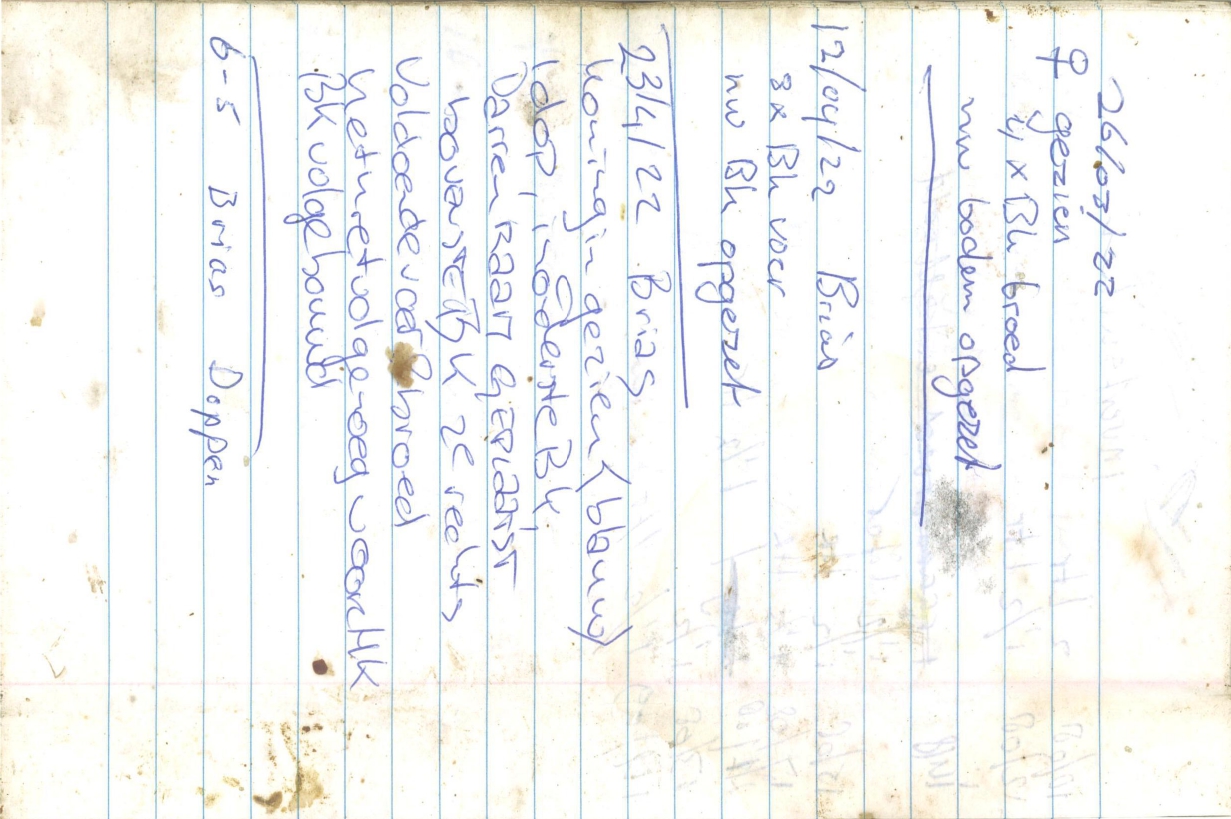 26/03/22
♀ gezien
4 x Bk broed
nw bodem opgezet
12/04/22 Brias
3x Bk voer
nw Bk opgezet
23/4/22 Brias
koningin gezien (blauw)
1 dop, in onderste Bk,
Darrenraan geplaatst
bovenste Bk 2e rechts
Voldoende voer & broed
Net niet vol genoeg voor HK
BK volgebouwd
6-5 Brias Doppen